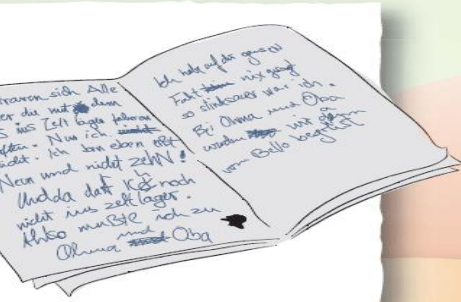 waren sich Alle
er die mit dem
ins Zelt lager fahren
Nur ich
nicht. Ich bin eben erst
Neun und nicht zehN!
Undda darf Ich noch
nicht ins zeltlager.
Allso mußte ich zu
Ohma und Oba
Ich hab auf der ganzen
Fahrt nix gesagt
so stinksauer war ich.
Bei Ohma und Oba
wurden wir
vom Bello begrüßt